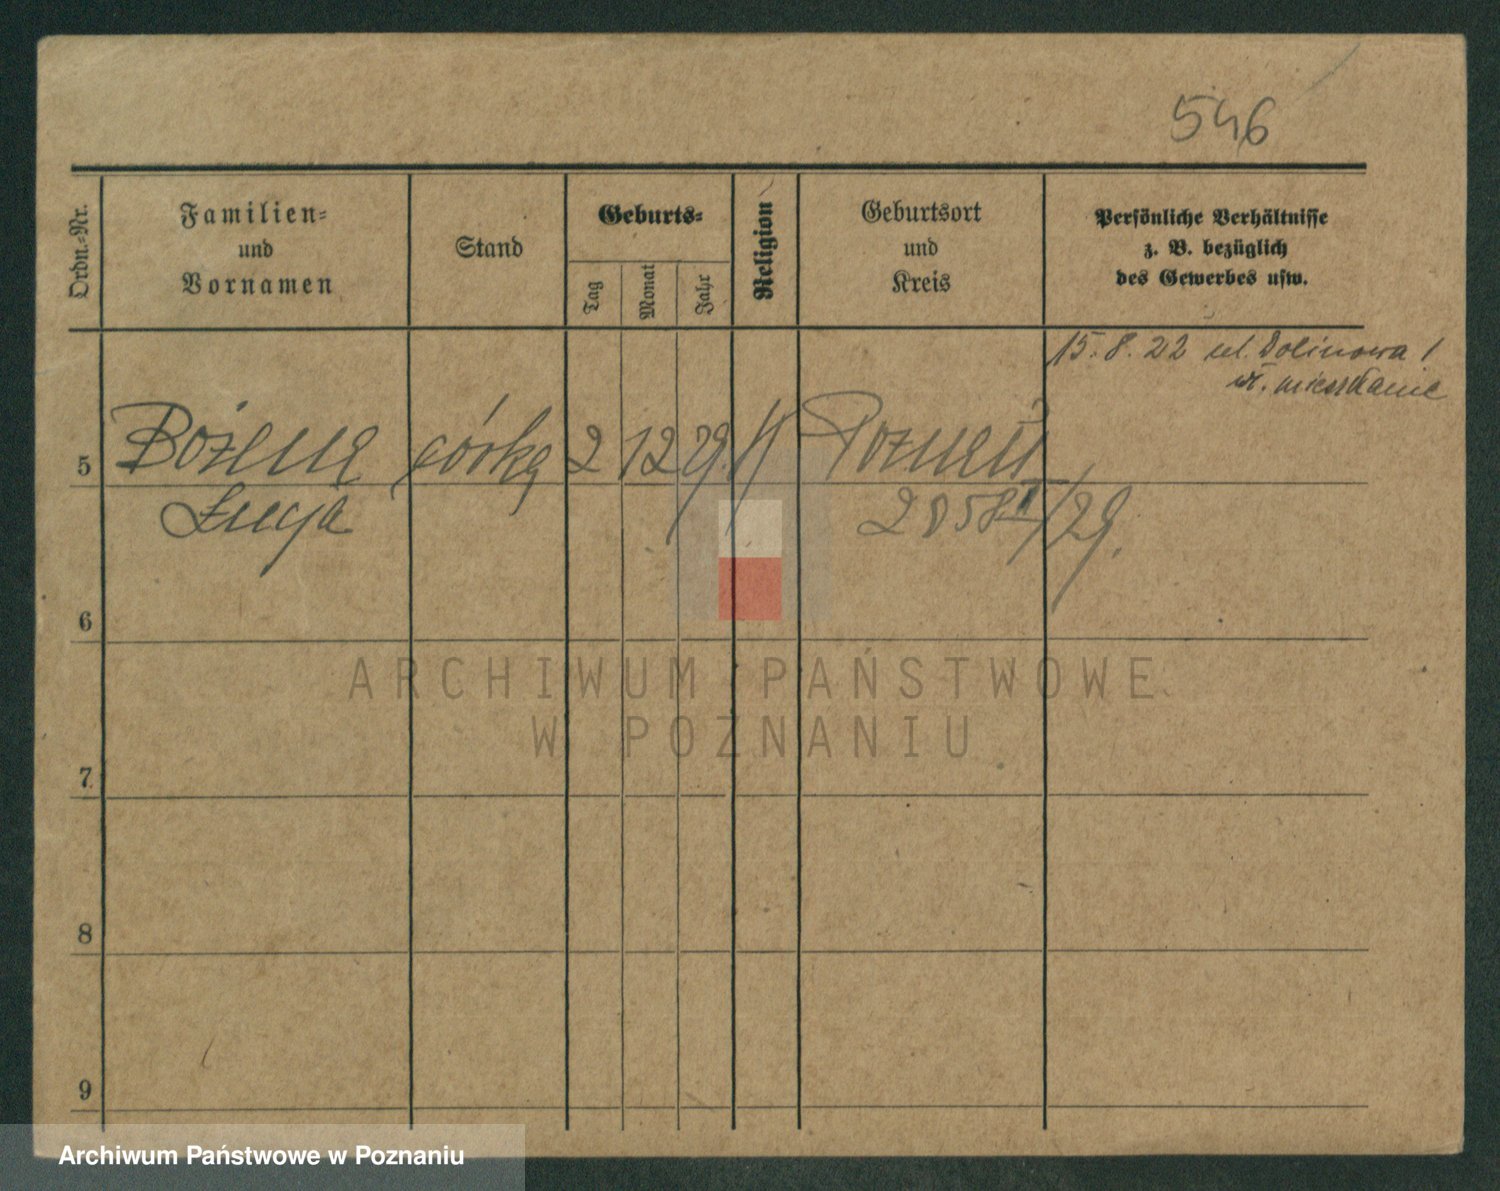 546
Ordn.-Nr.
Familien-
und
Vornamen
Stand
Geburts-
Tag
Monat
Jahr
Religion
Geburtsort
und
Kreis
Persönliche Verhältnisse
z. B. bezüglich
des Gewerbes usw.
15.8.22 ul. Dolinowa 1
wł. mieszkanie
5 Bożena córka 2 12 29. Poznań
Łucja 2858 II/29.
6
7
8
9
ARCHIWUM PAŃSTWOWE
W POZNANIU
Archiwum Państwowe w Poznaniu